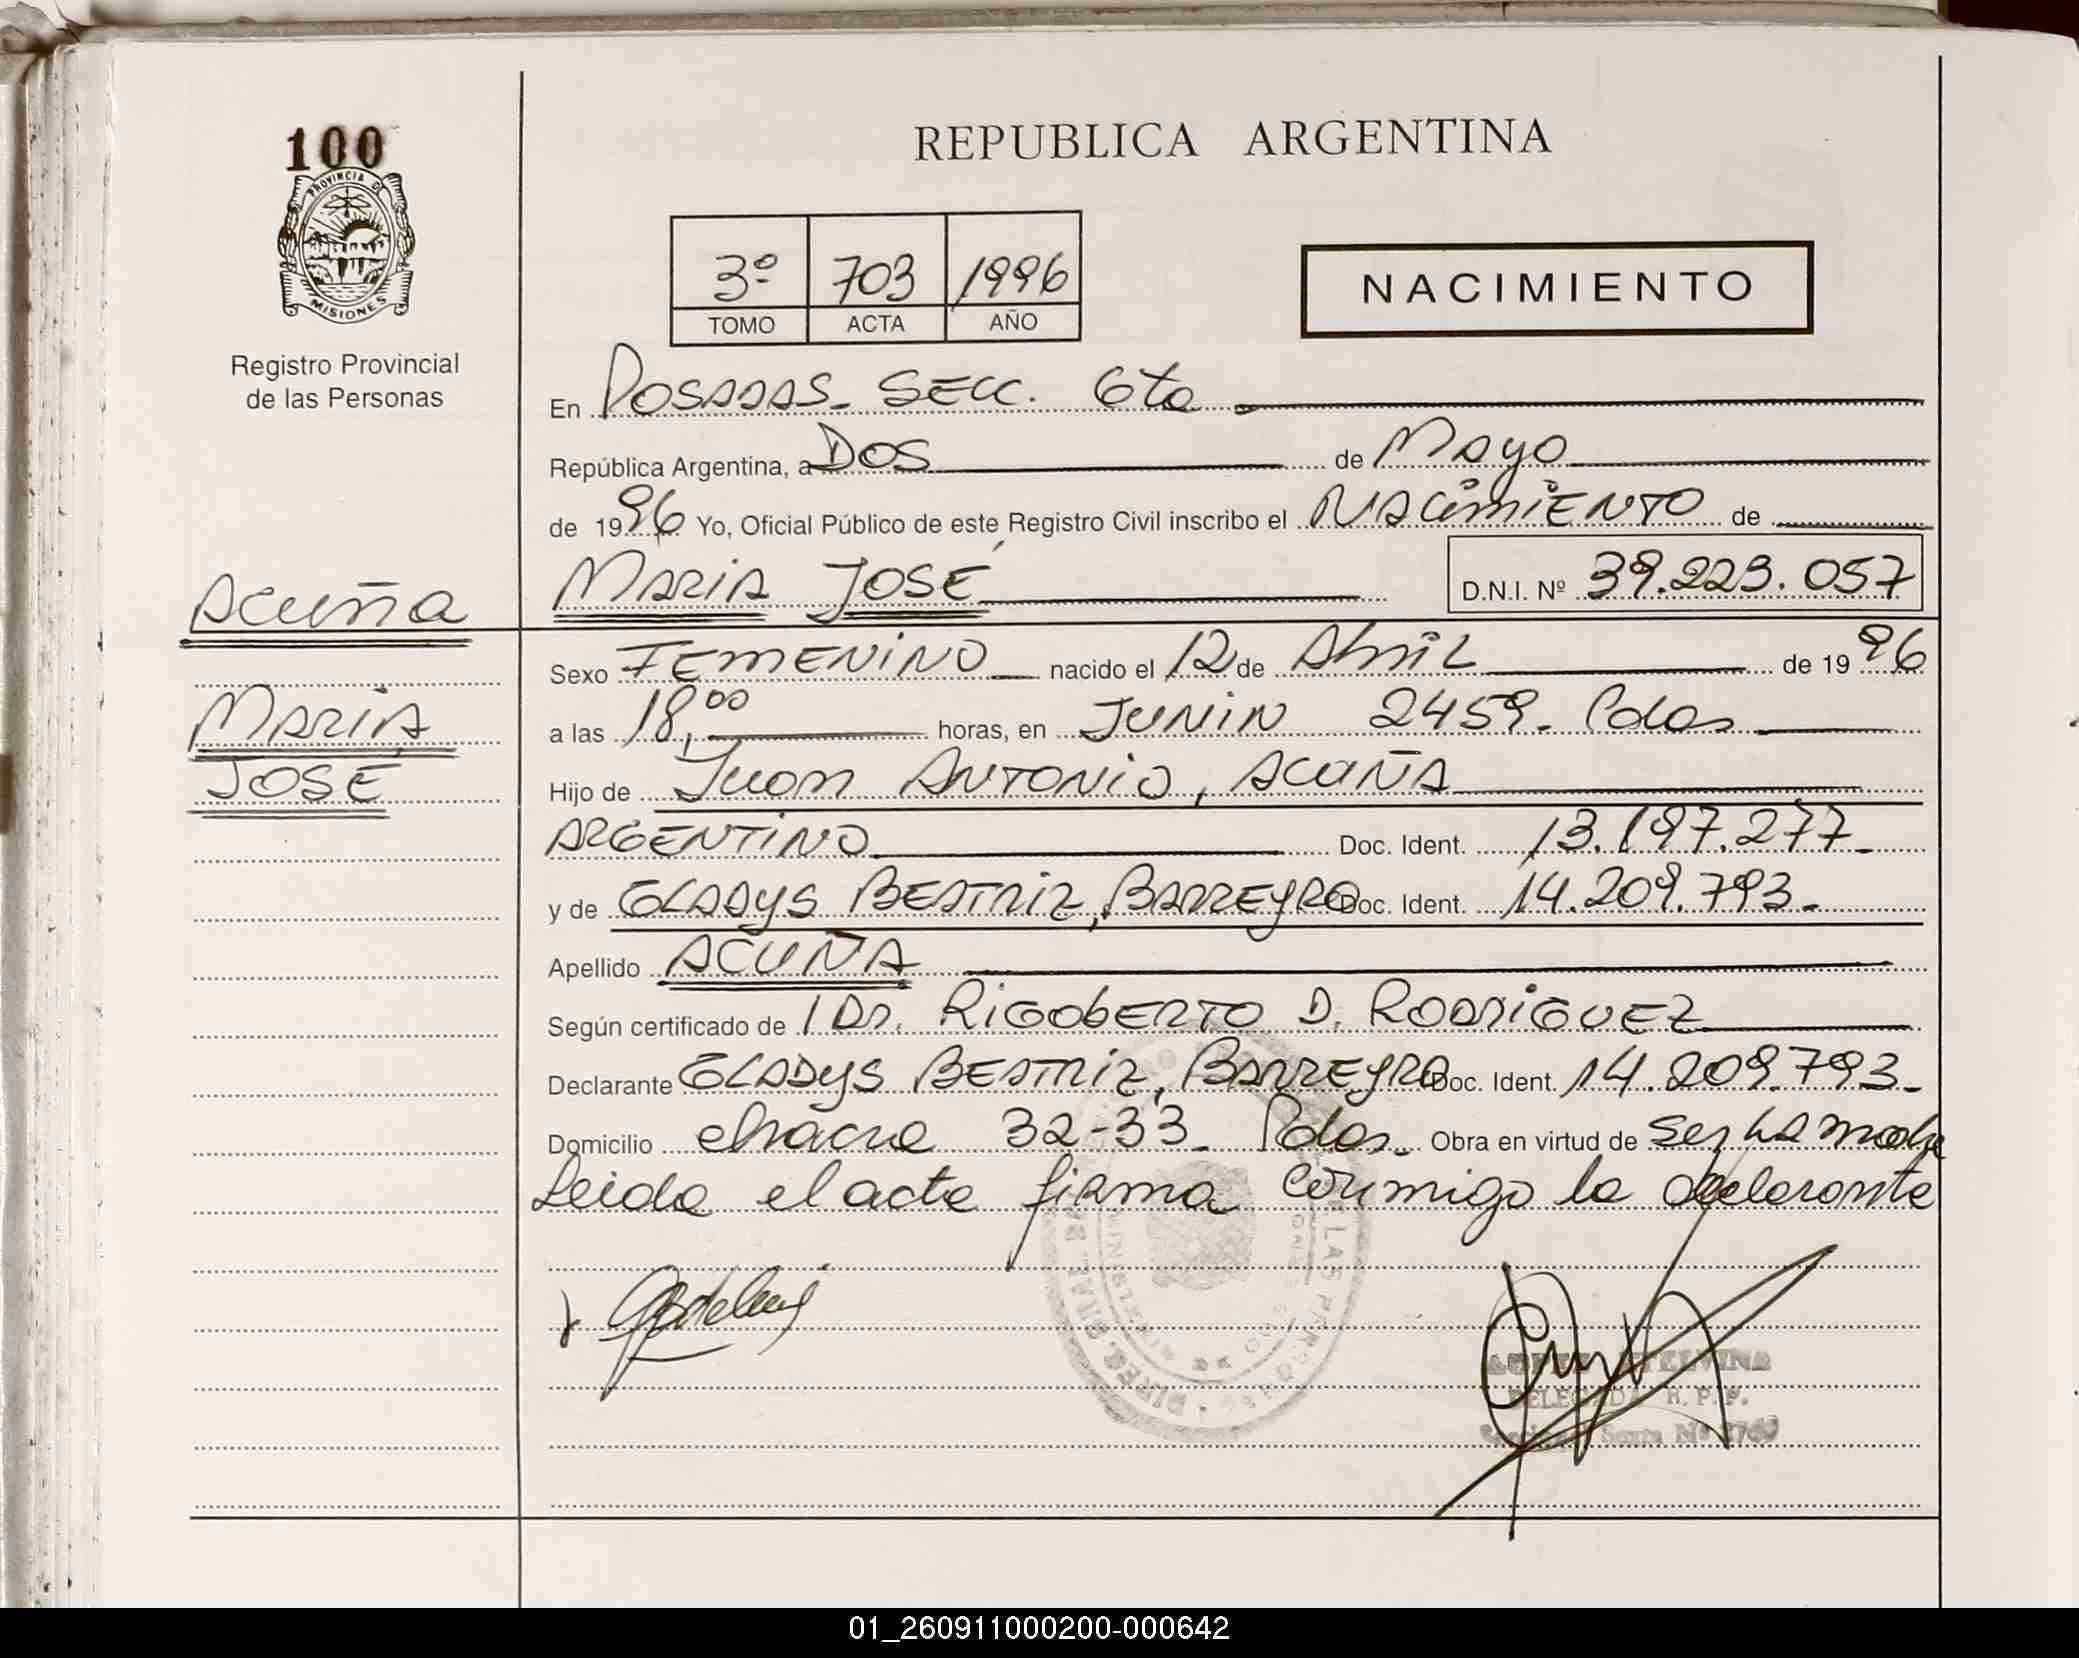 100
PROVINCIA D
MISIONES
Registro Provincial
de las Personas
REPUBLICA ARGENTINA
3º 703 1996
TOMO ACTA AÑO
NACIMIENTO
En POSADAS - SECC. 6ta
República Argentina, a DOS de Mayo
de 1996 Yo, Oficial Público de este Registro Civil inscribo el NACIMIENTO de
Acuña
MARIA JOSÉ D.N.I. Nº 39.223.057
Sexo FEMENINO nacido el 12 de Abril de 1996
MARIA
a las 18,00 horas, en JUNIN 2459- Pdas
JOSÉ
Hijo de Juan ANTONIO, ACUÑA
ARGENTINO Doc. Ident. 13.197.277-
y de GLADYS BEATRIZ, BARREYRO Doc. Ident. 14.209.793-
Apellido ACUÑA
Según certificado de Dr. RIGOBERTO D. RODRIGUEZ
Declarante GLADYS BEATRIZ, BARREYRO Doc. Ident. 14.209.793-
Domicilio chacra 32-33- Pdas- Obra en virtud de ser LA madre
Leida el acta firma conmigo la declarante
DELEGADA R. P. P.
Sexta Nº
01_260911000200-000642